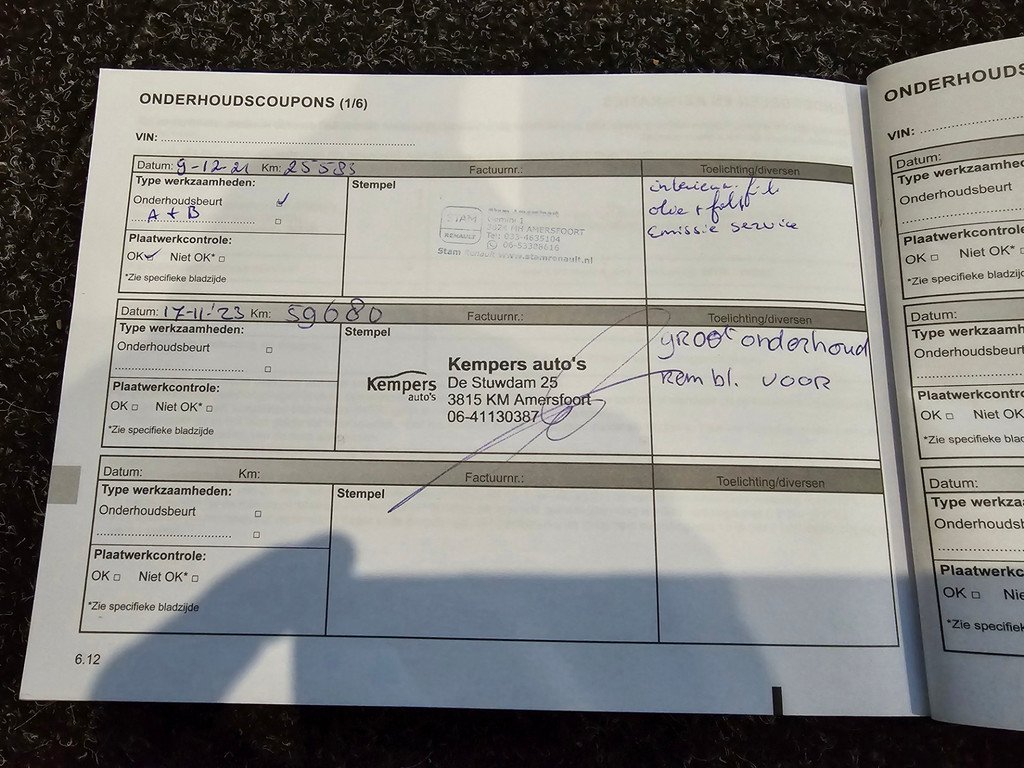 ONDERHOUDSCOUPONS (1/6)
VIN:
Datum: 9-12-21 Km: 25583 Factuurnr.: Toelichting/diversen
Type werkzaamheden:
Onderhoudsbeurt
A + B
Plaatwerkcontrole:
OK Niet OK*
*Zie specifieke bladzijde
Stempel
STAM
RENAULT
Gemini 1
3824 MH AMERSFOORT
Tel: 033-4635104
06-53308616
Stam Renault www.stamrenault.nl
interieur fil
olie + filt
Emissie service
Datum: 17-11-'23 Km: 59680 Factuurnr.: Toelichting/diversen
Type werkzaamheden:
Onderhoudsbeurt
Plaatwerkcontrole:
OK Niet OK*
*Zie specifieke bladzijde
Stempel
Kempers
auto's
Kempers auto's
De Stuwdam 25
3815 KM Amersfoort
06-41130387
groot onderhoud
Rem bl. voor
Datum: Km: Factuurnr.: Toelichting/diversen
Type werkzaamheden:
Onderhoudsbeurt
Plaatwerkcontrole:
OK Niet OK*
*Zie specifieke bladzijde
Stempel
6.12
ONDERHOUDS
VIN:
Datum:
Type werkzaamhe
Onderhoudsbeurt
Plaatwerkcontrole
OK Niet OK*
*Zie specifieke blad
Datum:
Type werkzaamh
Onderhoudsbeurt
Plaatwerkcontro
OK Niet OK
*Zie specifieke
Datum:
Type werkza
Onderhoudsb
Plaatwerkc
OK Nie
*Zie specifiek